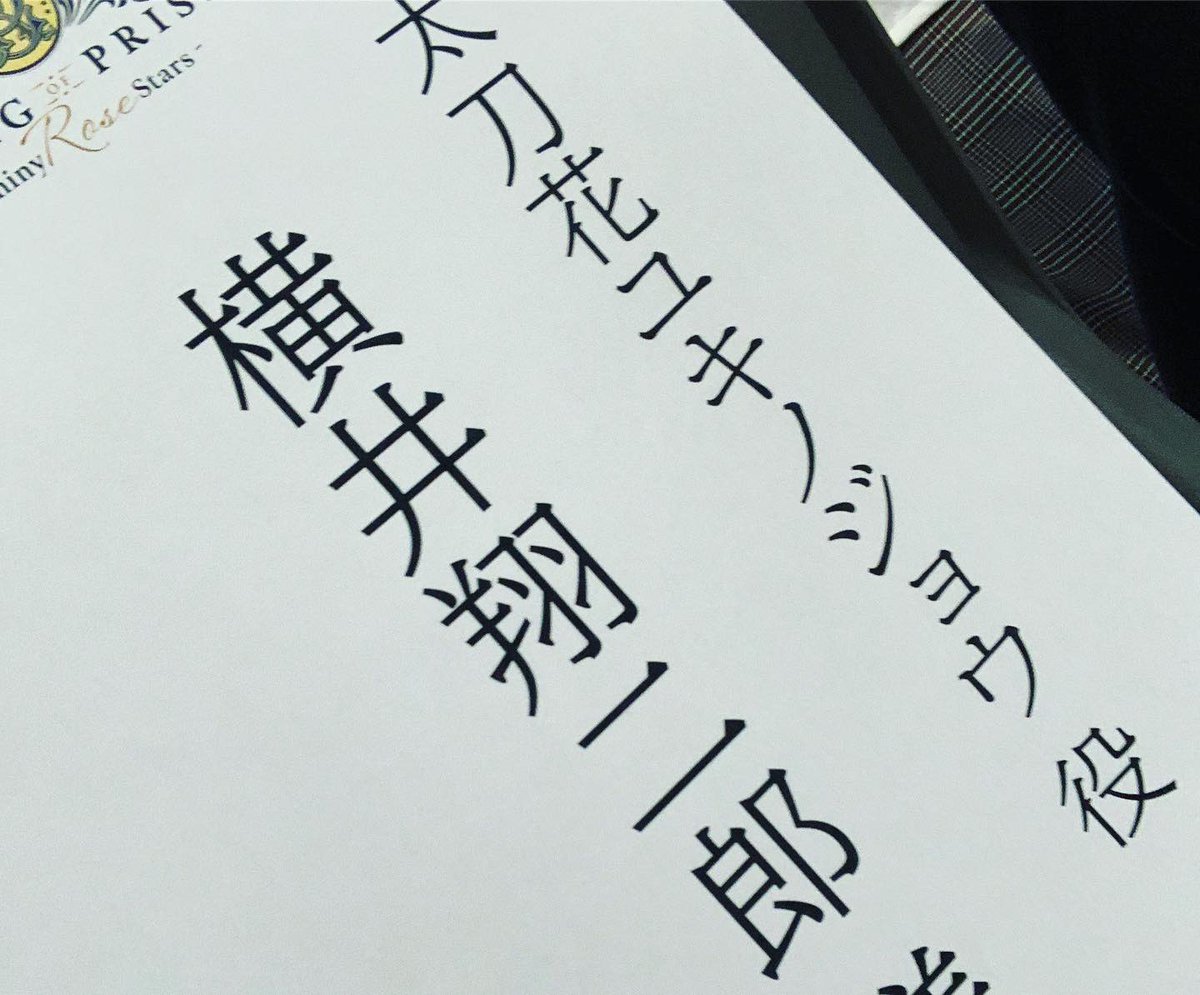 G OF PRIS
hiny Rose Stars -
太刀花ユキノジョウ 役
横井翔二郎